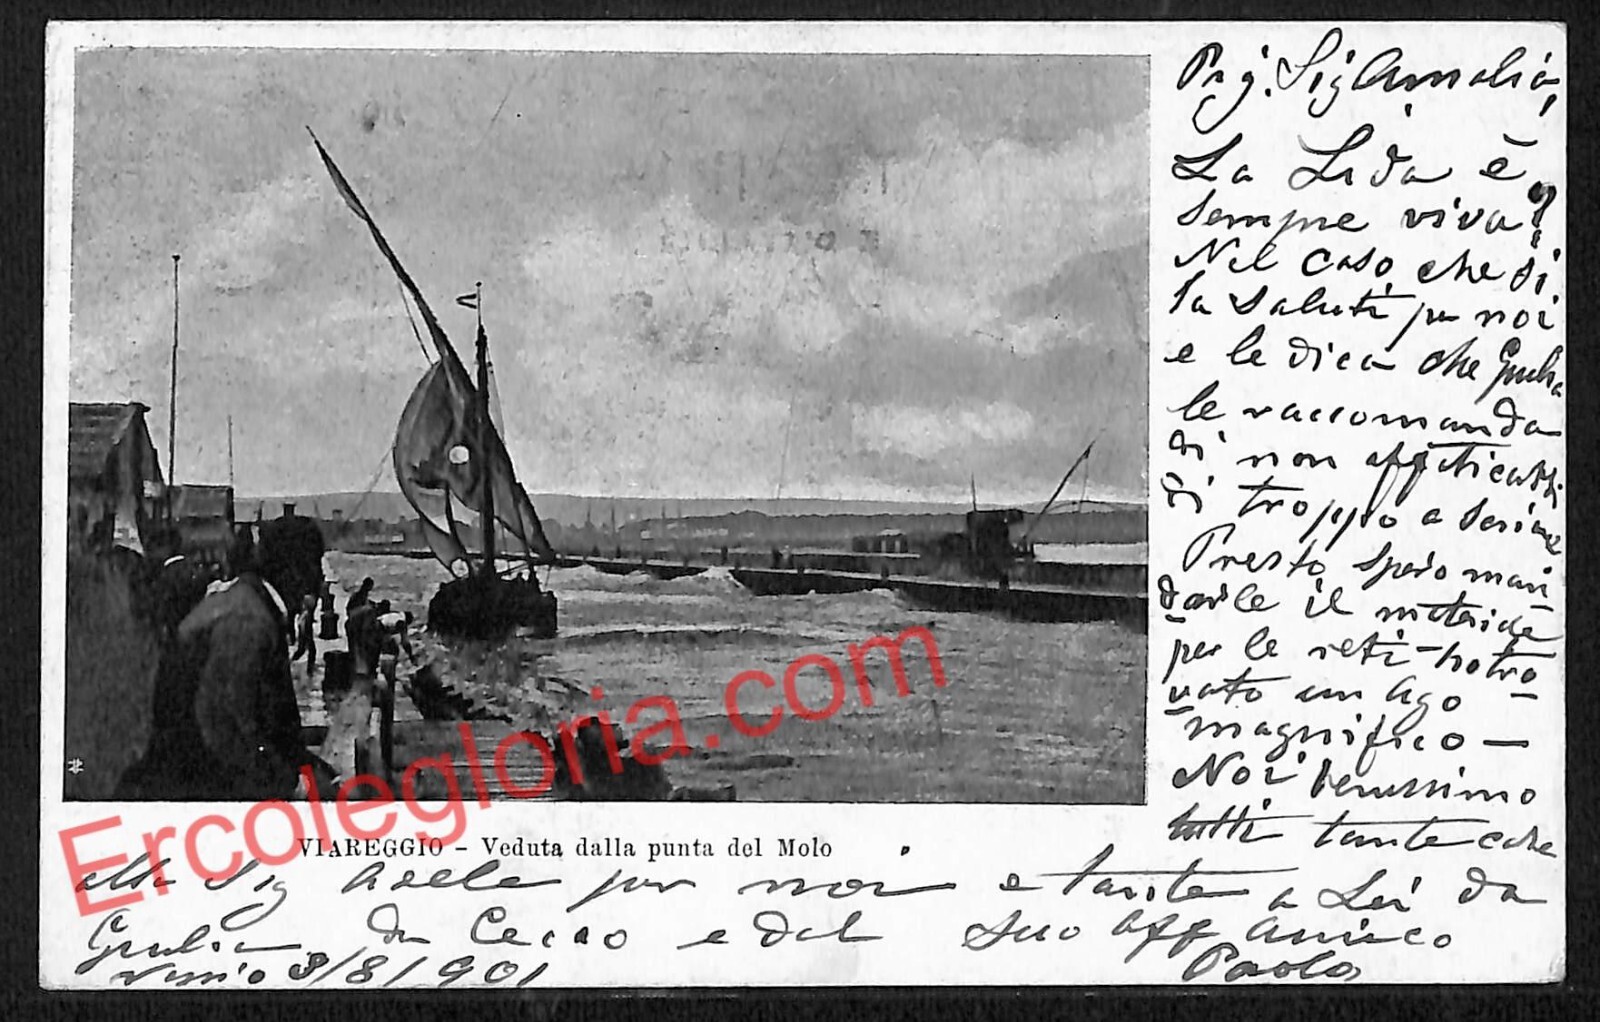 Preg. Sig Amalia,
La Lida è
sempre viva?
Nel caso che si
la saluti per noi
e le dica che Giulia
le raccomanda
di non affaticarsi
di troppo a
Presto spero man
darle il materiale
per le reti - ho tro
vato un ago -
magnifico -
Noi benissimo
tutti tante cose
VIAREGGIO - Veduta dalla punta del Molo
alla Sig Adele per noi e tante a Lei da
Giulia da Cecco e dal suo aff amico
3/8/901 Paolo
Ercolegloria.com